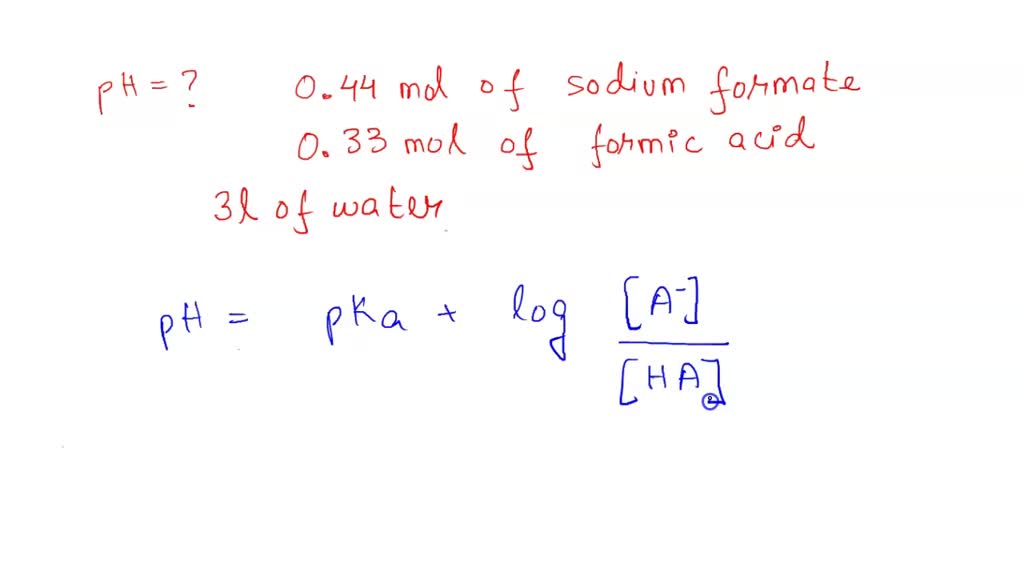 pH = ? 0.44 mol of sodium formate
0.33 mol of formic acid
3l of water
pH = pKa + log [A⁻]
[HA]